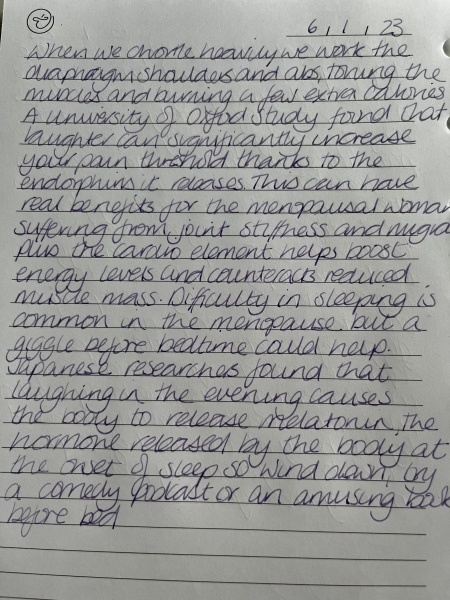 2
6, 1, 23
When we chortle heavily we work the
diaphragm, shoulders and abs, toning the
muscles and burning a few extra calories
A university of Oxfod study found that
laughter can significantly increase
your pain threhold thanks to the
endorphins it releases. This can have
real benefits for the menopausal woman
suffering from joint stiffness and
Plus the cardio element helps boost
energy levels and counteracts reduced
muscle mass. Difficulty in sleeping is
common in the menopause. but a
giggle before bedtime could help.
Japanese researchers found that
laughing in the evening causes
the body to release melatonin, the
hormone released by the body at
the onset of sleep so wind down, try
a comedy podcast or an amusing book
before bed